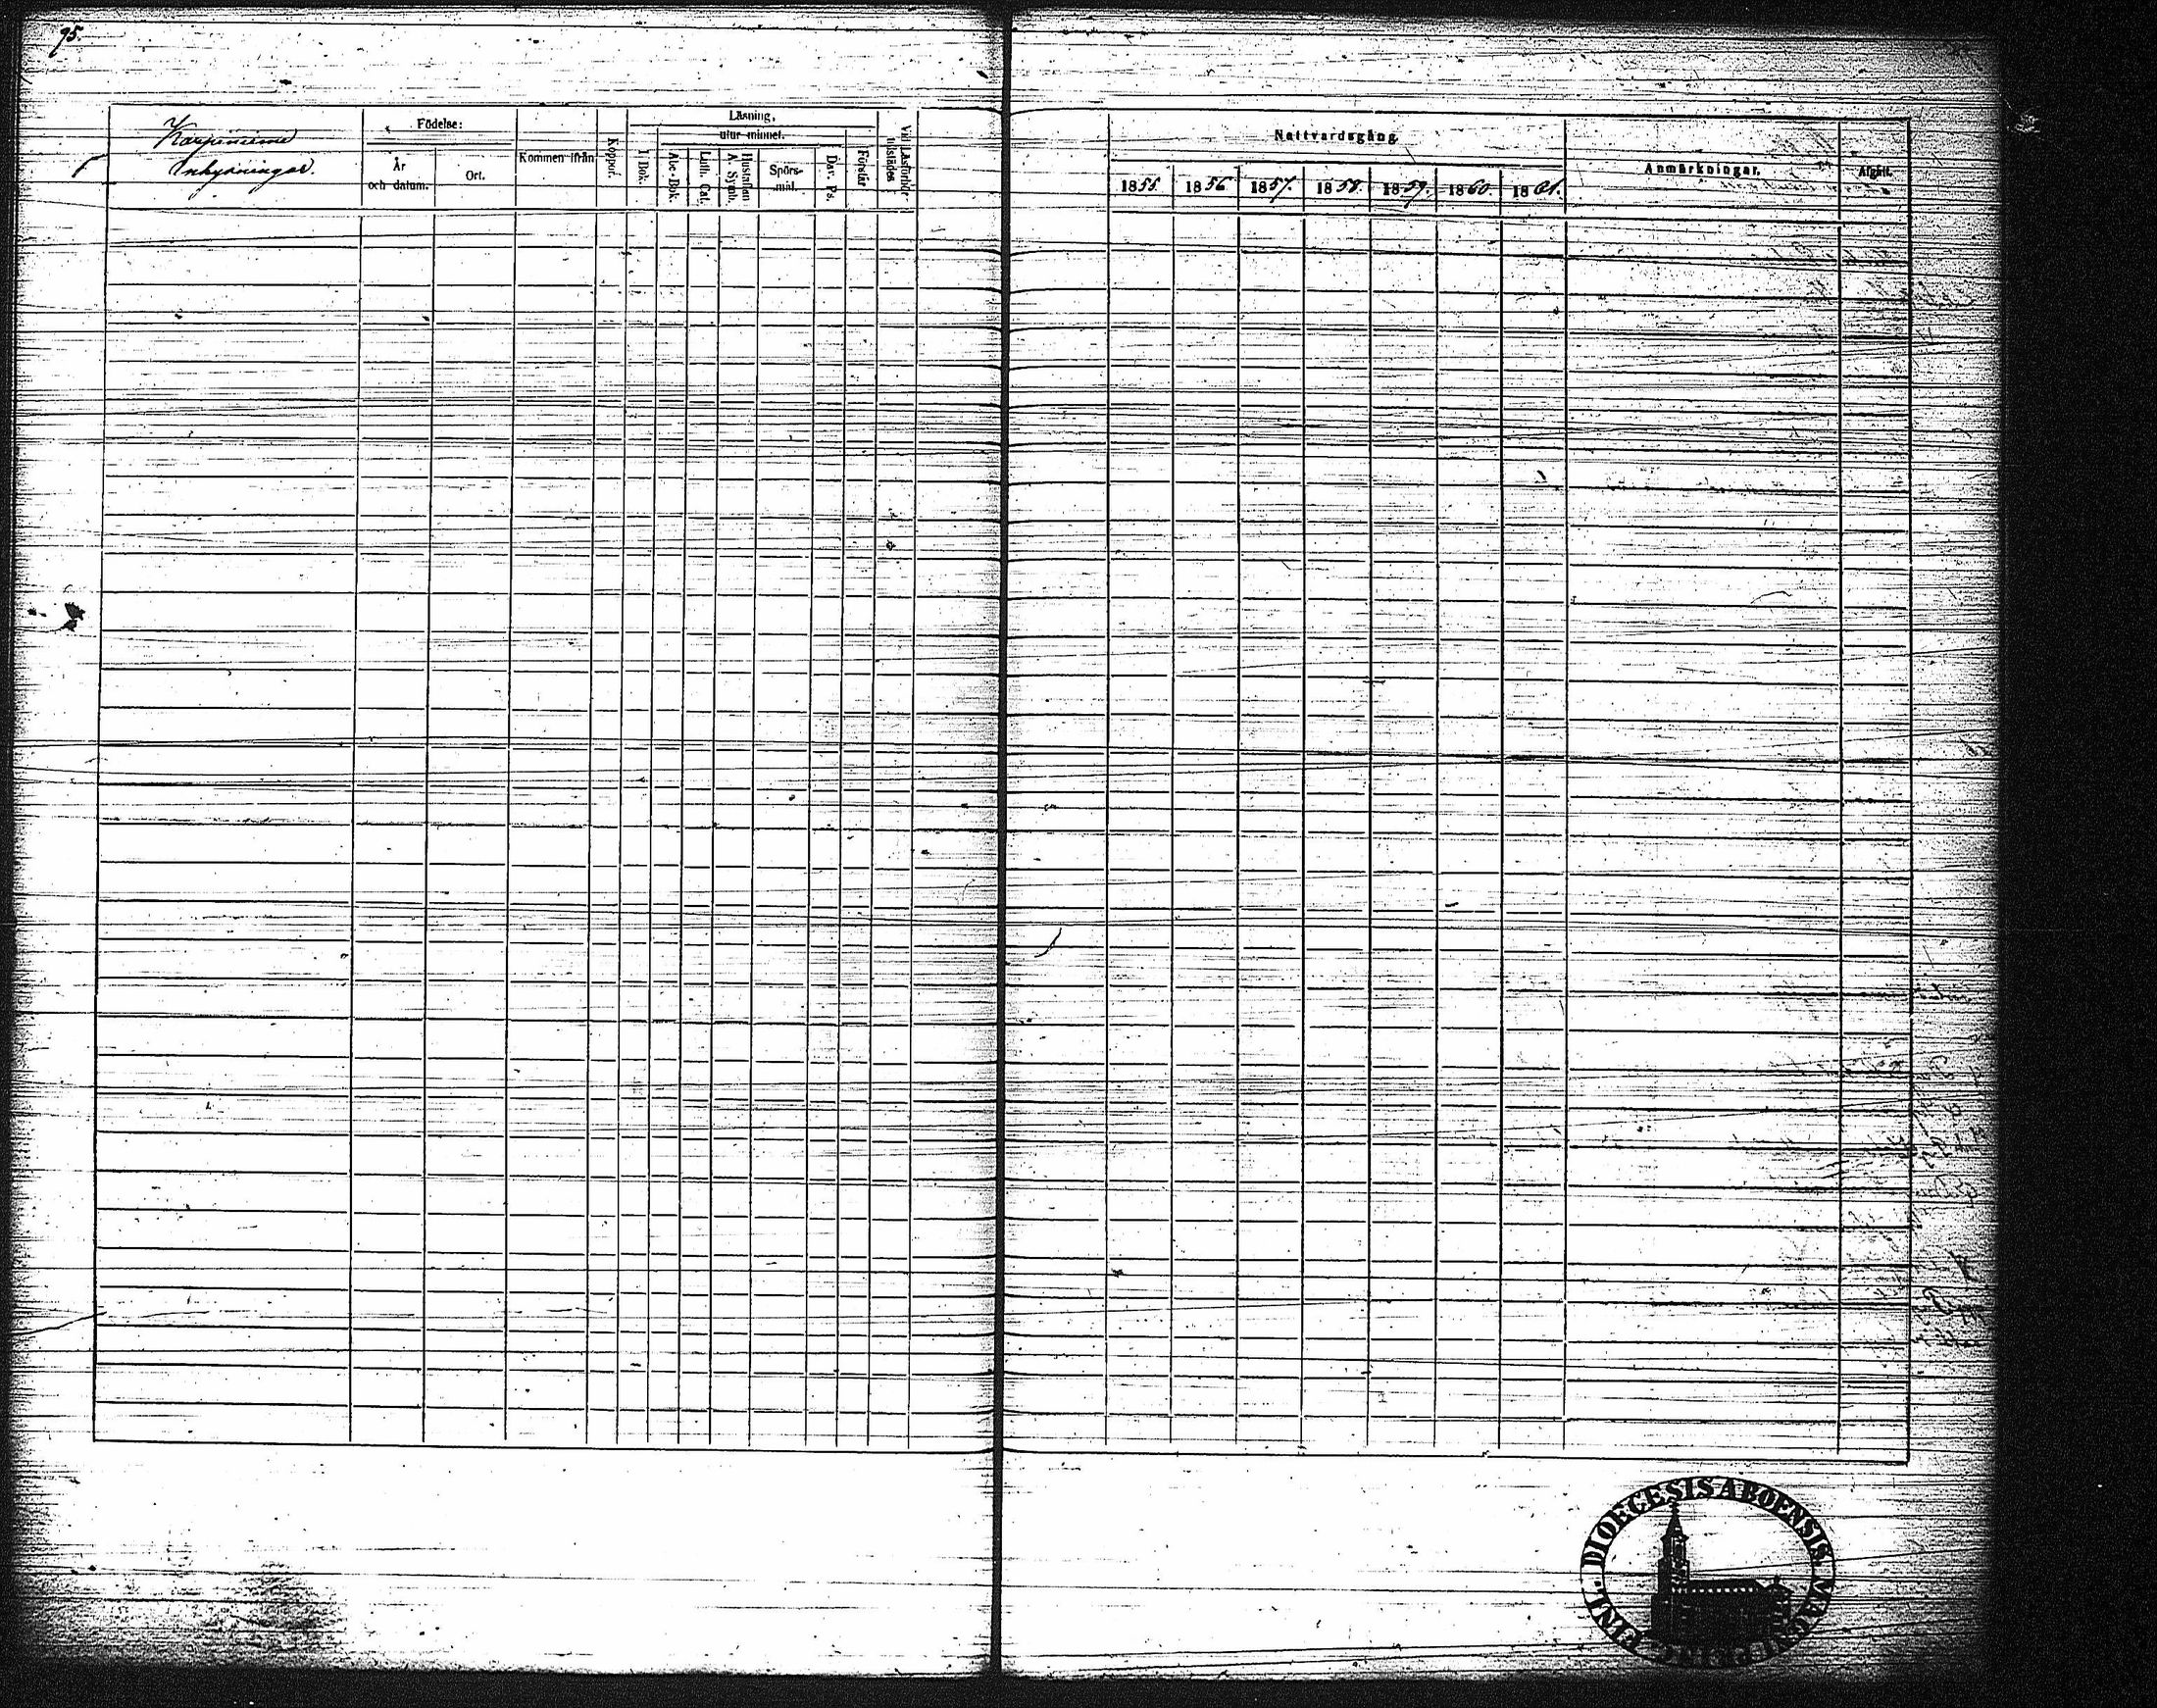 95.
Karpiniemi
Inhysningar.
Födelse:
År
och datum.
Ort.
Kommen ifrån
Koppor.
Läsning,
utur minnet.
I Bok.
Abc-Bok.
Luth. Cat.
Hustaflan
A. Symb.
Spörs-
mål.
Dav. Ps.
Förstår
Vid Läsförhör
tillstädes
Nattvardsgång
1855.
1856.
1857.
1858.
1859.
1860.
1861.
Anmärkningar.
Afgått.
DIOECESIS ABOENSIS MAGNI PRINC. FINL.